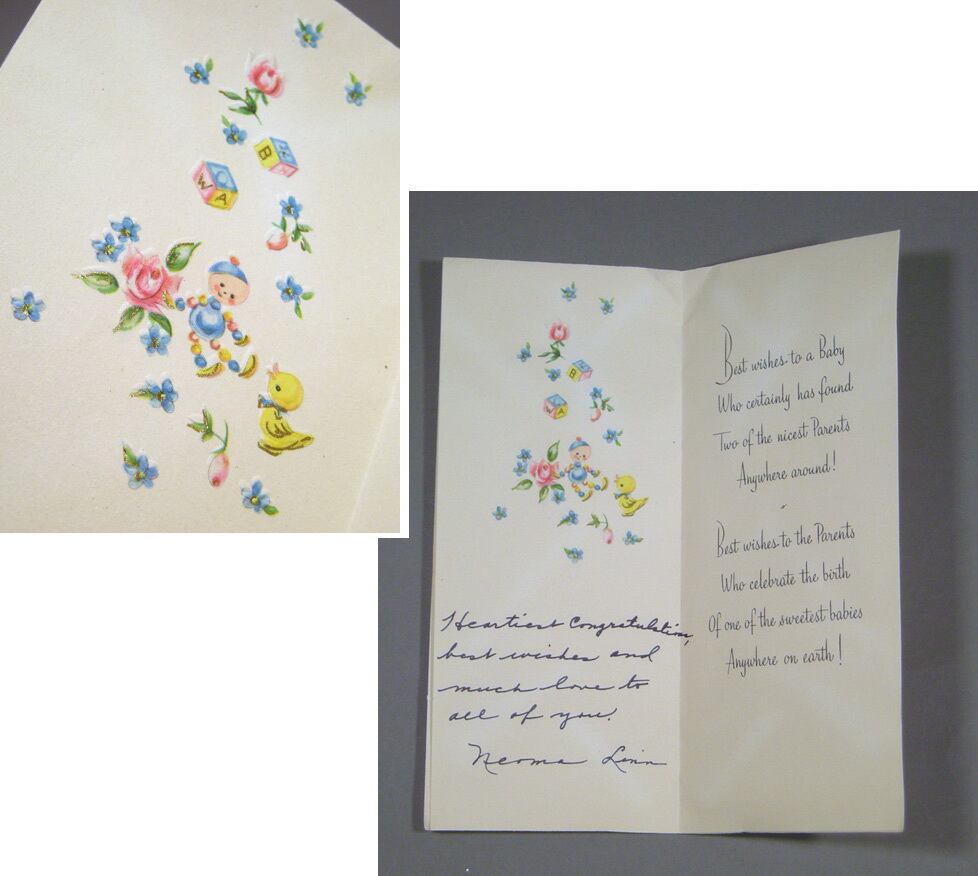 B
W
A
B
W
A
Heartiest Congratulations,
best wishes and
much love to
all of you.
Neoma Linn
Best wishes to a Baby
Who certainly has found
Two of the nicest Parents
Anywhere around!
Best wishes to the Parents
Who celebrate the birth
Of one of the sweetest babies
Anywhere on earth!